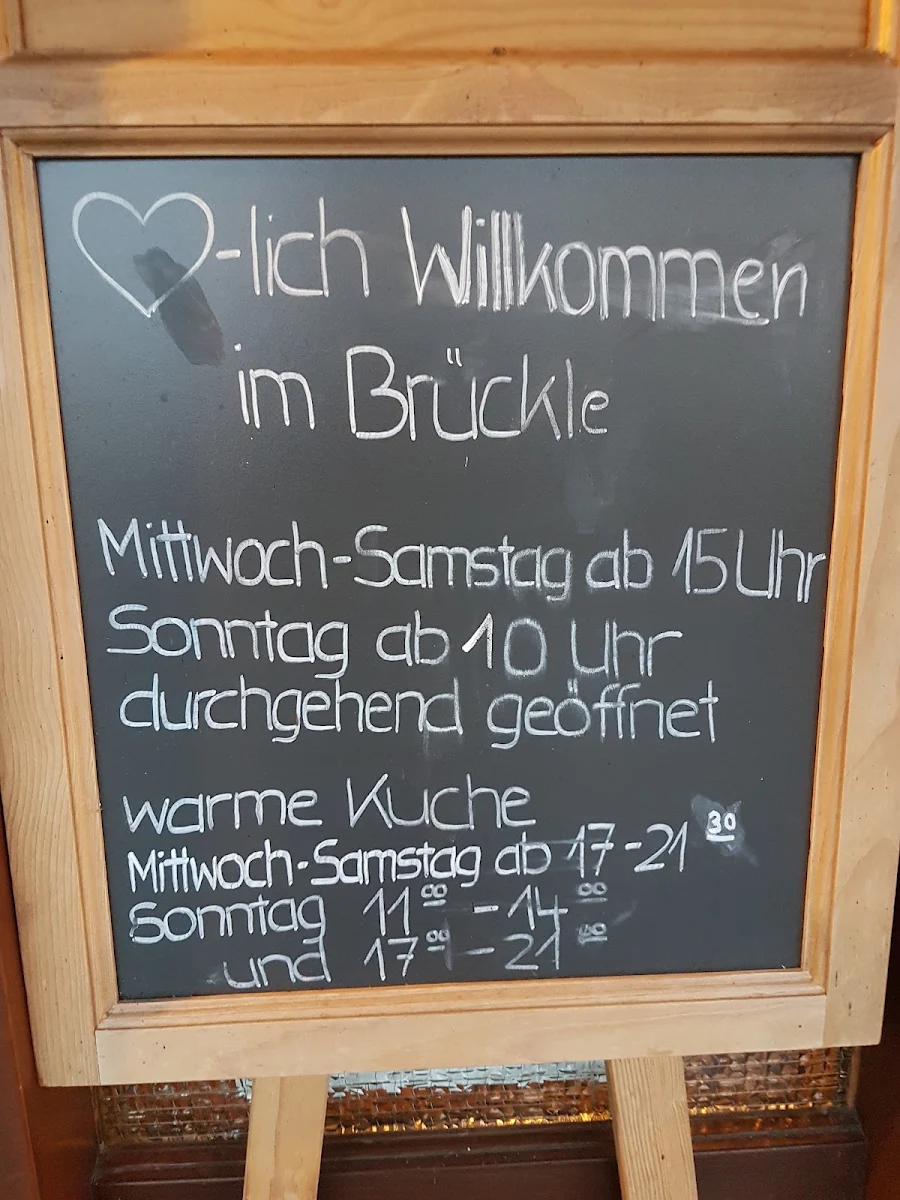 ♡-lich Willkommen
im Brückle
Mittwoch-Samstag ab 15 Uhr
Sonntag ab 10 Uhr
durchgehend geöffnet
warme Küche
Mittwoch-Samstag ab 17-21 30
Sonntag 11 00 - 14 00
und 17 00 - 21 00